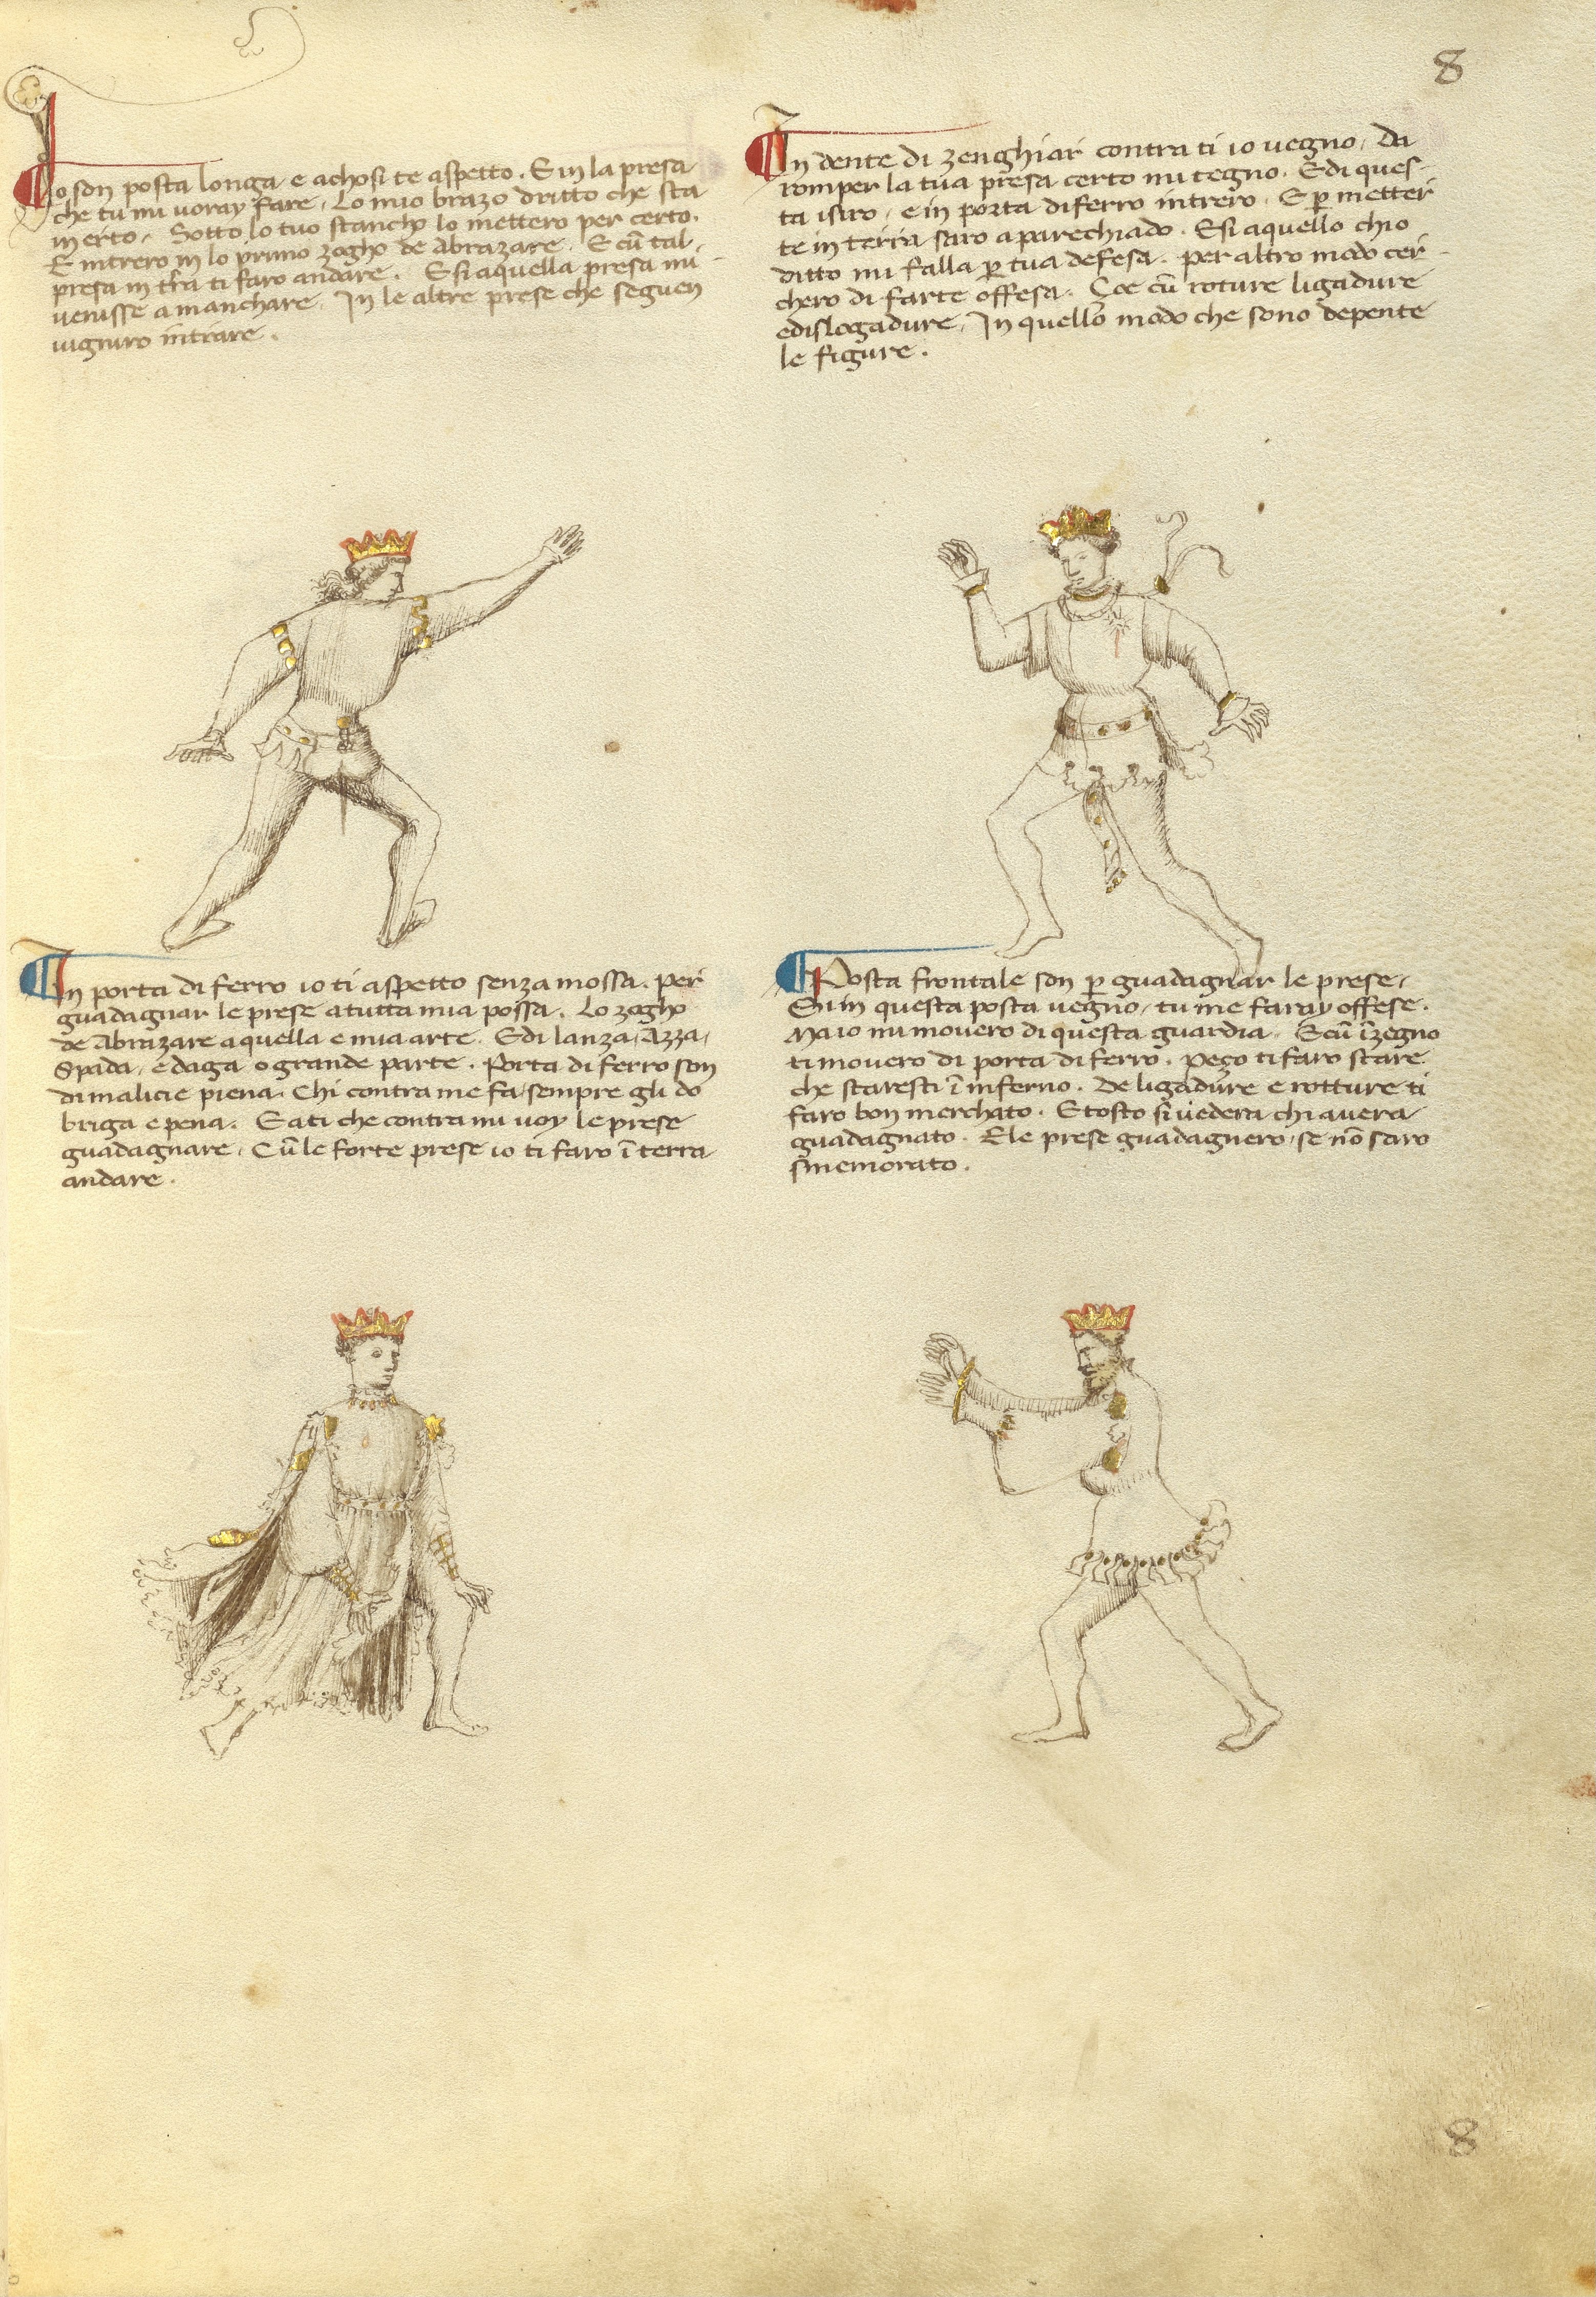 8
Io son posta longa e achosi te aspetto. E in la presa
che tu mi voray fare, Lo mio brazo dritto che sta
in erto, Sotto lo tuo stancho lo mettero per certo.
E intrero in lo primo zogho de Abrazare. E cū tal
presa in tr̄a ti faro andare. E si aquella presa mi
venisse a manchare, In le altre prese che seguen
vigniro intrare.
In dente di zenghiar contra ti io vegno, Da
romper la tua presa certo mi tegno. E di ques-
ta isiro, e in porta di ferro intrero. E ꝑ metter
te in terra saro aparechiado. E si aquello ch'io
ditto mi falla ꝑ tua defesa. per altro modo cer
chero di farte offesa. Çoe cū roture ligadure
e dislogadure, In quello modo che sono depente
le figure.
In porta di ferro io ti aspetto senza mossa. per
guadagnar le prese a tutta mia possa. Lo zogho
de Abrazare aquella e mia arte. E di lanza, Azza,
Spada, e daga o grande parte. Porta di ferro son
di malicie piena. Chi contra me fa sempre gli do
briga e pena. E a ti che contra mi voy le prese
guadagnare, Cū le forte prese io ti faro ī terra
andare.
Posta frontale son ꝑ guadagnar le prese,
Si in questa posta vegno, tu me faray offese.
Ma io mi movero di questa guardia. E cū īzegno
ti movero di porta di ferro. Pezo ti faro stare
che staresti ī inferno. De ligadure e rotture ti
faro bon merchato. E tosto si vedera chi avera
guadagnato. E le prese guadagnero, se nō saro
smemorato.
8